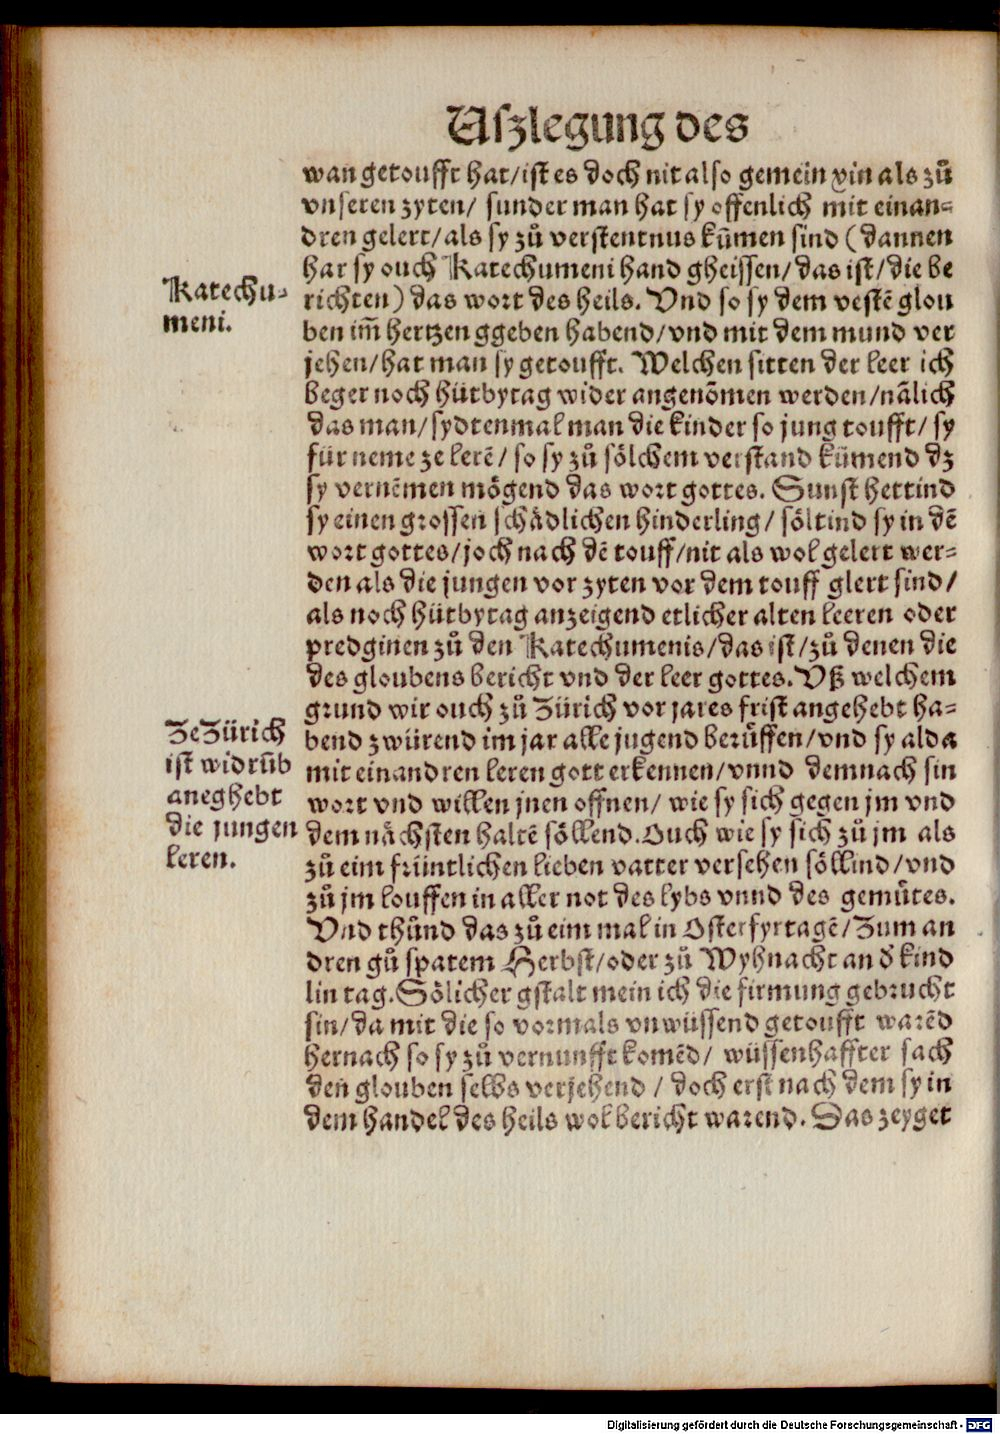 Uſzlegung des
wan getoufft hat/iſt es doch nit alſo gemein xin als zuͦ
vnſeren zyten/ ſunder man hat ſy offenlich mit einan⸗
dren gelert/als ſy zuͦ verſtentnus kum̄en ſind (dannen
har ſy ouch Katechumeni hand gheiſſen/das iſt/die be
Katechu⸗
meni.
richten) das wort des heils. Vnd ſo ſy dem veſtē glou
ben im̄ hertzen ggeben habend/vnd mit dem mund ver
jehen/hat man ſy getoufft. Welchen ſitten der leer ich
beger noch hütbytag wider angenōmen werden/nālich
das man/ſydtenmal man die kinder ſo jung toufft/ ſy
für neme ze lerē/ ſo ſy zuͦ ſoͤlchem verſtand kümend dz
ſy vernēmen moͤgend das wort gottes. Sunſt hettind
ſy einen groſſen ſchaͤdlichen hinderling/ ſoͤltind ſy in dē
wort gottes/joch nach dē touff/nit als wol gelert wer⸗
den als die jungen vor zyten vor dem touff glert ſind/
als noch hütbytag anzeigend etlicher alten leeren oder
predginen zuͦ den Katechumenis/das iſt/zuͦ denen die
des gloubens bericht vnd der leer gottes. Vß welchem
grund wir ouch zuͦ Zürich vor jares friſt angehebt ha⸗
Ze Zürich
iſt widrūb
aneghebt
die jungen
leren.
bend zwürend im jar alle jugend beruͤffen/vnd ſy alda
mit einandren leren gott erkennen/vnnd demnach ſin
wort vnd willen jnen offnen/ wie ſy ſich gegen jm vnd
dem naͤchſten haltē ſoͤllend. Ouch wie ſy ſich zuͦ jm als
zuͦ eim früntlichen lieben vatter verſehen ſoͤllind/vnd
zuͦ jm louffen in aller not des lybs vnnd des gemuͤtes.
Vnd thuͦnd das zuͦ eim mal in Oſterfyrtagē/Zum an
dren guͦ ſpatem Herbſt/oder zuͦ Wyhnacht an d' kind
lin tag. Soͤlicher gſtalt mein ich die firmung gebrucht
ſin/da mit die ſo vormals vnwüſſend getoufft warēd
hernach ſo ſy zuͦ vernunfft komēd/ wüſſenhaffter ſach
den glouben ſelbs verjehend / doch erſt nach dem ſy in
dem handel des heils wol bericht warend. Das zeyget
Digitalisierung gefördert durch die Deutsche Forschungsgemeinschaft - DFG